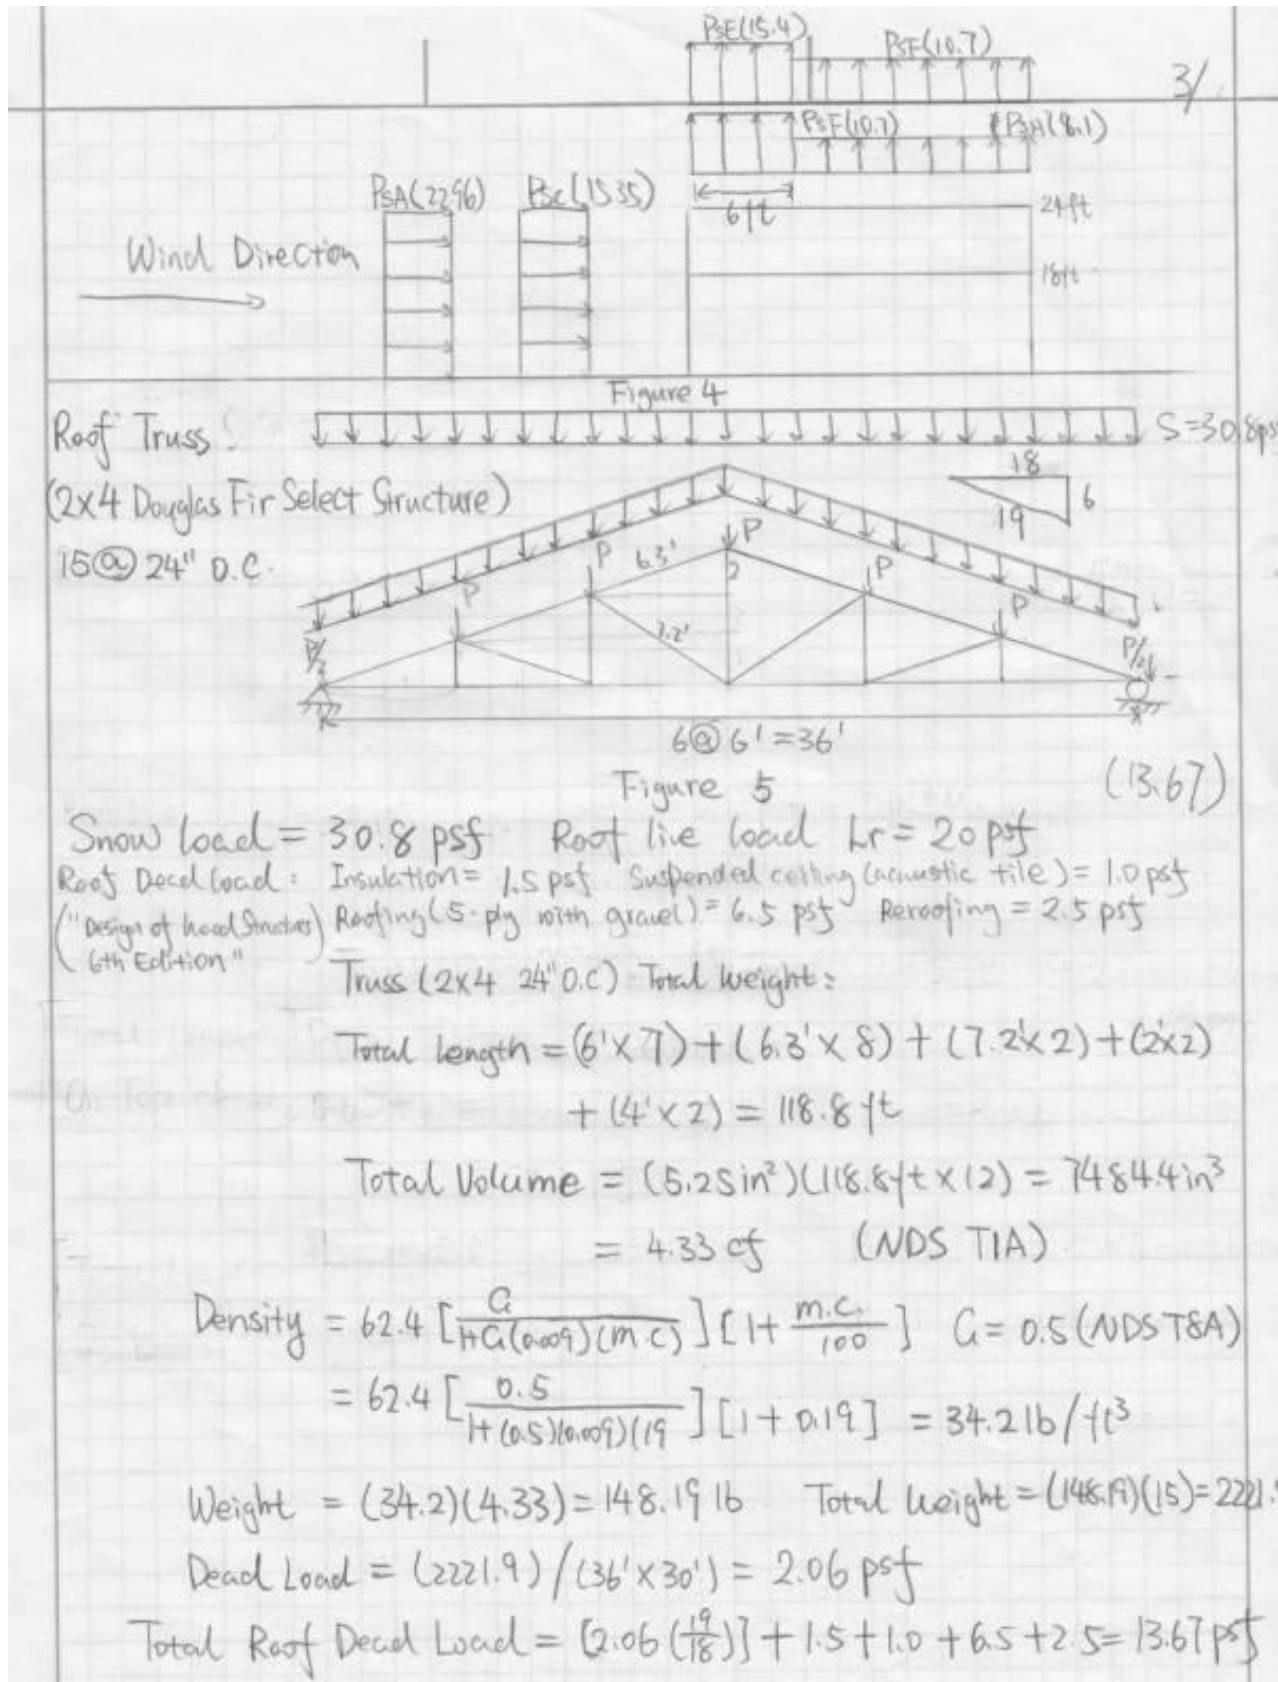 PSE(15.4)
PSF(10.7)
3/
PSF(10.7)
PSA(8.1)
PSA(22.96) PSC(15.35)
6ft
24ft
Wind Direction
18ft
Figure 4
Roof Truss:
S=30.8psf
(2x4 Douglas Fir Select Structure)
15@ 24" O.C.
18
6
19
P
P
6.3'
2
P
P
7.2'
P
P/2
P/2
R
6@ 6' = 36'
Figure 5
(13.67)
Snow load = 30.8 psf Roof live load Lr = 20 psf
Roof Dead load: Insulation = 1.5 psf Suspended ceiling (acoustic tile) = 1.0 psf
("Design of Wood Structures 6th Edition") Roofing (5-ply with gravel) = 6.5 psf Reroofing = 2.5 psf
Truss (2x4 24" O.C) Total Weight:
Total length = (6' x 7) + (6.3' x 8) + (7.2' x 2) + (2' x 2)
+ (4' x 2) = 118.8 ft
Total Volume = (5.25 in²)(118.8 ft x 12) = 7484.4 in³
= 4.33 cf (NDS T1A)
Density = 62.4 [G / 1+G(0.009)(m.c)] [1 + m.c. / 100] G = 0.5 (NDS T8A)
= 62.4 [0.5 / 1+(0.5)(0.009)(19] [1 + 0.19] = 34.2 lb/ft³
Weight = (34.2)(4.33) = 148.19 lb Total weight = (148.19)(15) = 2221.9
Dead Load = (2221.9) / (36' x 30') = 2.06 psf
Total Roof Dead Load = [2.06 (19/18)] + 1.5 + 1.0 + 6.5 + 2.5 = 13.67 psf